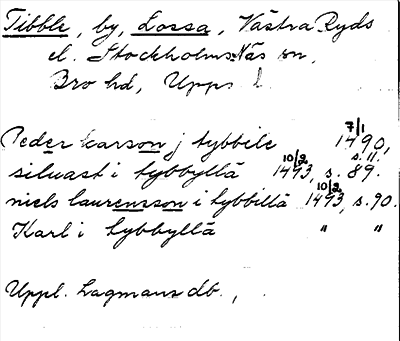 Tibble, by, Lossa, Västra Ryds
el. Stockholms-Näs sn,
Bro hd, Uppl.
Peder larson j tybbile 7/1 1490, s. 11.
siluast i tybbyllä 10/2 1493, s. 89.
niels laurensson i tybbillä 10/2 1493, s. 90.
Karl i tybbyllä " "
Uppl. Lagmansdb.,